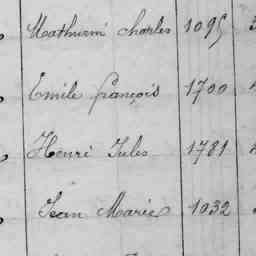 Mathurin Charles 1095
Emile françois 1700
Henri Jules 1781
Jean Marie 1032